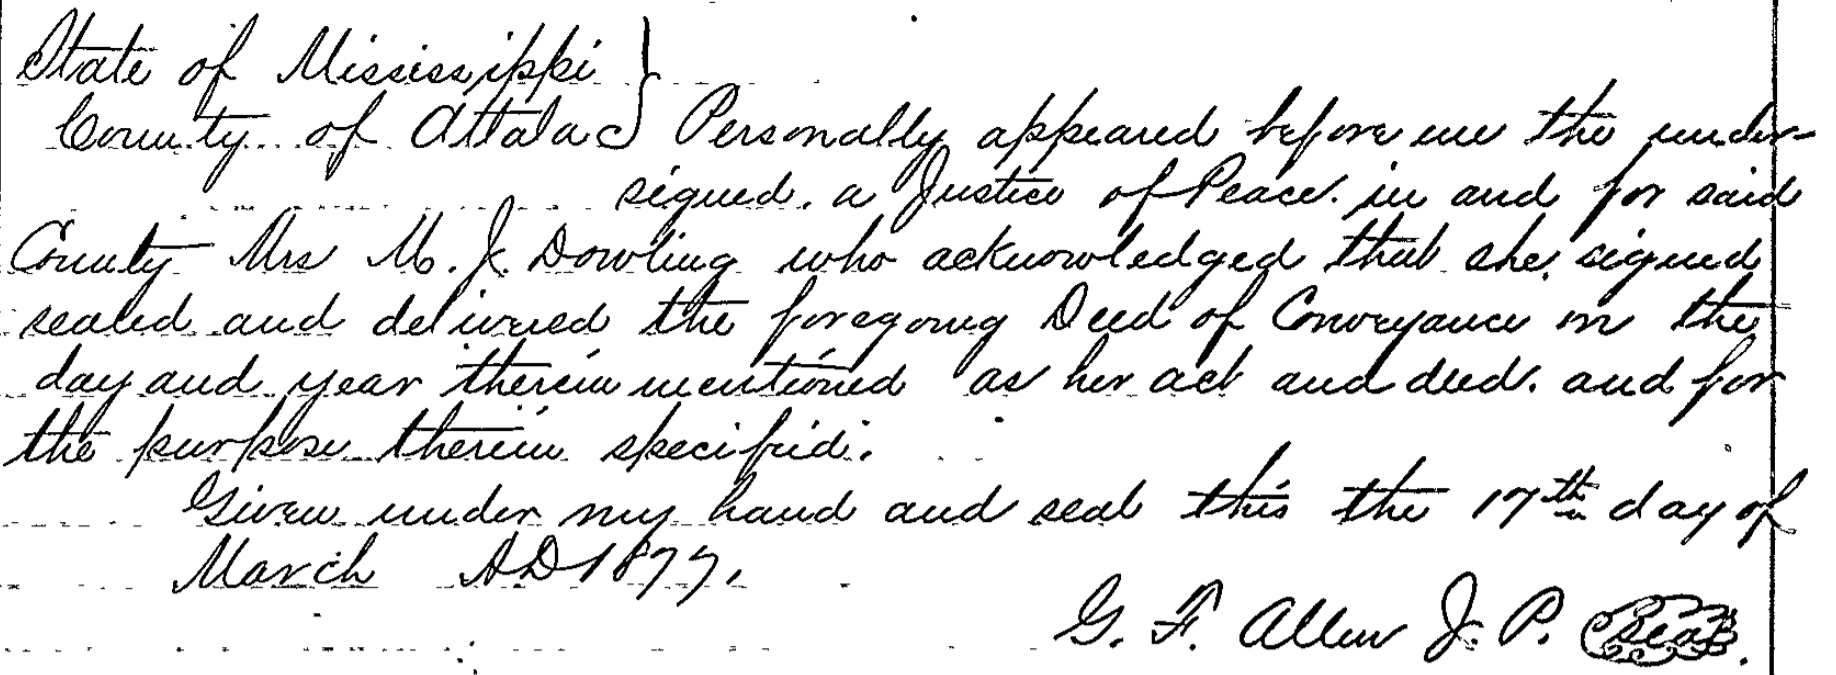 State of Mississippi }
County of Attala } Personally appeared before me the under-
signed, a Justice of Peace. in and for said
County Mrs M. J. Dowling who acknowledged that she signed
sealed and delivered the foregoing Deed of Conveyance on the
day and year therein mentioned as her act and deed. and for
the purpose therein specified.
Given under my hand and seal this the 17th day of
March A.D 1877.
G. F. Allen J. P. Seal.